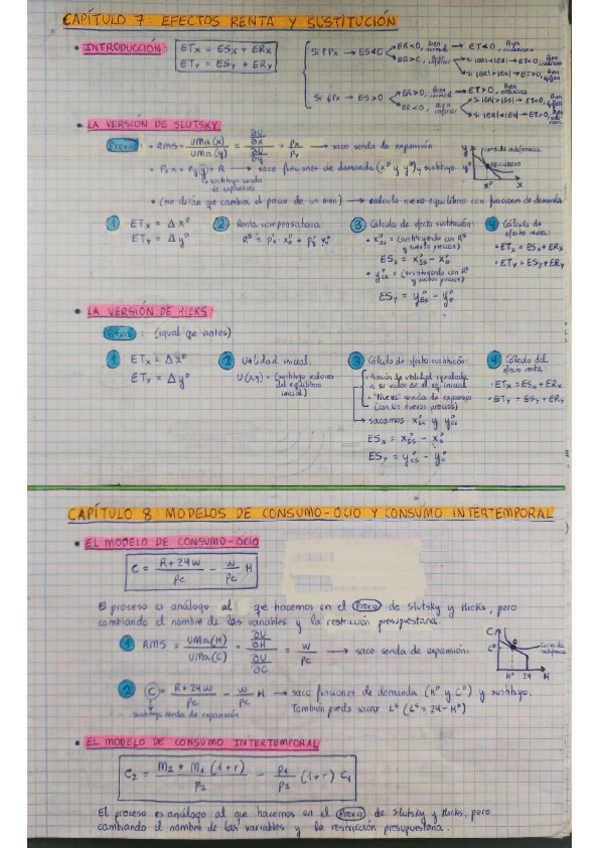 CAPÍTULO 7: EFECTOS RENTA Y SUSTITUCIÓN
• INTRODUCCIÓN:
ETx = ESx + ERx
ETy = ESy + ERy
Si ↑Px → ES<0
ER<0, Bien normal → ET<0, Bien ordinario
Si ↓Px → ES>0
ER>0, Bien normal → ET>0, Bien ordinario
ER<0, Bien inferior
• LA VERSIÓN DE SLUTSKY
Previo • RMS = UMa(x) / UMa(y) = ∂U/∂x / ∂U/∂y = Px / Py → saco senda de expansión
• Px x + Py y = R → saco funciones de demanda (x⁰ y y⁰) y sustituyo
sustituyo senda de expansión
• (me dirán que cambia el precio de un bien) → calculo nuevo equilibrio con funciones de demanda
1 ETx = Δx⁰
ETy = Δy⁰
2 Renta compensatoria:
3 Cálculo de efecto sustitución:
(sustituyendo con Rˢ y nuevos precios)
(sustituyendo con Rˢ y nuevos precios)
4 Cálculo de efecto renta:
• ETx = ESx + ERx
• ETy = ESy + ERy
• LA VERSIÓN DE HICKS
Previo: (igual que antes)
1 ETx = Δx⁰
ETy = Δy⁰
2 Utilidad inicial:
U(x,y) = (sustituyo valores del equilibrio inicial)
3 Cálculo de efecto sustitución:
Función de utilidad igualada a su valor en el eq. inicial
"Nueva" senda de expansión (con los nuevos precios)
4 Cálculo del efecto renta:
• ETx = ESx + ERx
• ETy = ESy + ERy
CAPÍTULO 8: MODELOS DE CONSUMO-OCIO Y CONSUMO INTERTEMPORAL
• EL MODELO DE CONSUMO-OCIO
C = R+24w / Pc - w / Pc H
El proceso es análogo al que hacemos en el Previo de Slutsky y Hicks, pero
cambiando el nombre de las variables y la restricción presupuestaria.
1 RMS = UMa(H) / UMa(C) = ∂U/∂H / ∂U/∂C = w / Pc → saco senda de expansión.
2 C = R+24w / Pc - w / Pc H → saco funciones de demanda (H⁰ y C⁰) y sustituyo.
sustituyo senda de expansión
También puedo sacar Lˢ (Lˢ = 24 - H⁰)
• EL MODELO DE CONSUMO INTERTEMPORAL
C₂ = M₂ + M₁ (1+r) / P₂ - P₁ / P₂ (1+r) C₁
El proceso es análogo al que hacemos en el Previo de Slutsky y Hicks, pero
cambiando el nombre de las variables y la restricción presupuestaria.